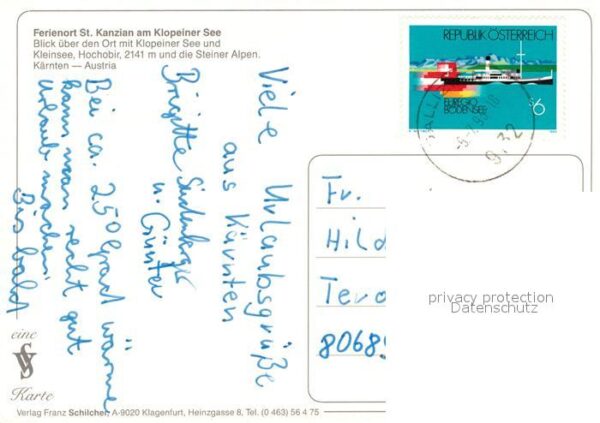 Ferienort St. Kanzian am Klopeiner See
Blick über den Ort mit Klopeiner See und
Kleinsee, Hochobir, 2141 m und die Steiner Alpen.
Kärnten — Austria
REPUBLIK ÖSTERREICH
EUREGIO
BODENSEE
S6
9132
Viele Urlaubsgrüße
aus Kärnten
Brigitte
u. Günter
Bei ca. 25° Grad wärme
kann man recht gut
Urlaub machen!
Bis bald
Fr.
Hild
80689
privacy protection
Datenschutz
eine
Karte
Verlag Franz Schilcher, A-9020 Klagenfurt, Heinzgasse 8, Tel. (0 463) 56 4 75